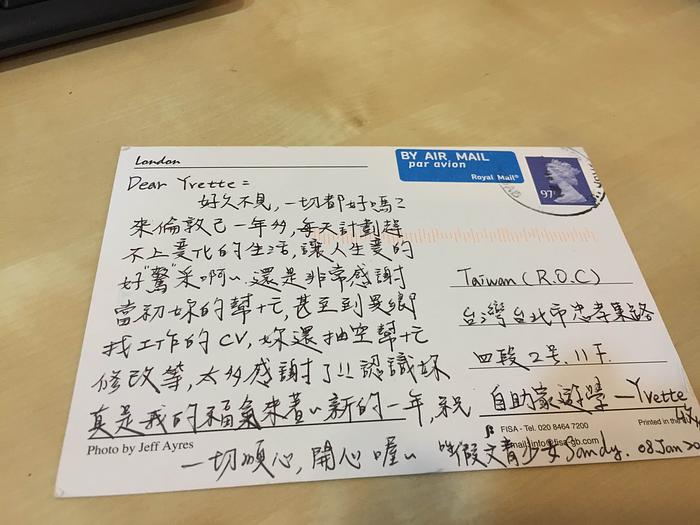 London
BY AIR MAIL
par avion
Royal Mail
97
Dear Yvette:
好久不見,一切都好嗎?
來倫敦已一年多,每天計劃趕
不上變化的生活,讓人生變的
好"驚"采啊~ 還是非常感謝
當初妳的幫忙,甚至到曼徹
找工作的CV,妳還抽空幫忙
修改等,太多感謝了!! 認識妳
真是我的福氣來著~ 新的一年,祝
一切順心,開心喔~
假文青少女 Sandy. 08 Jan 20
Taiwan (R.O.C)
台灣台北市忠孝東路
四段2号.11F.
自助家遊學 — Yvette
FISA - Tel. 020 8464 7200
Printed in the
email: info@fisa-gb.com
Photo by Jeff Ayres